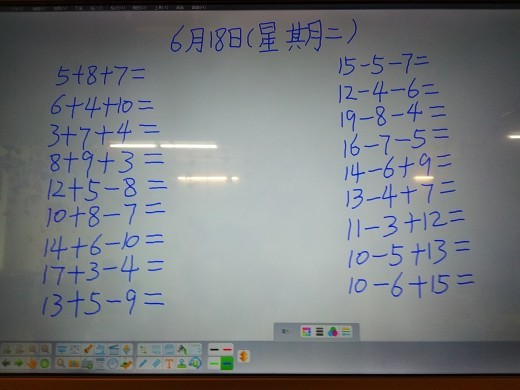 6月18日(星期二)
5+8+7=
6+4+10=
3+7+4=
8+9+3=
12+5-8=
10+8-7=
14+6-10=
17+3-4=
13+5-9=
15-5-7=
12-4-6=
19-8-4=
16-7-5=
14-6+9=
13-4+7=
11-3+12=
10-5+13=
10-6+15=